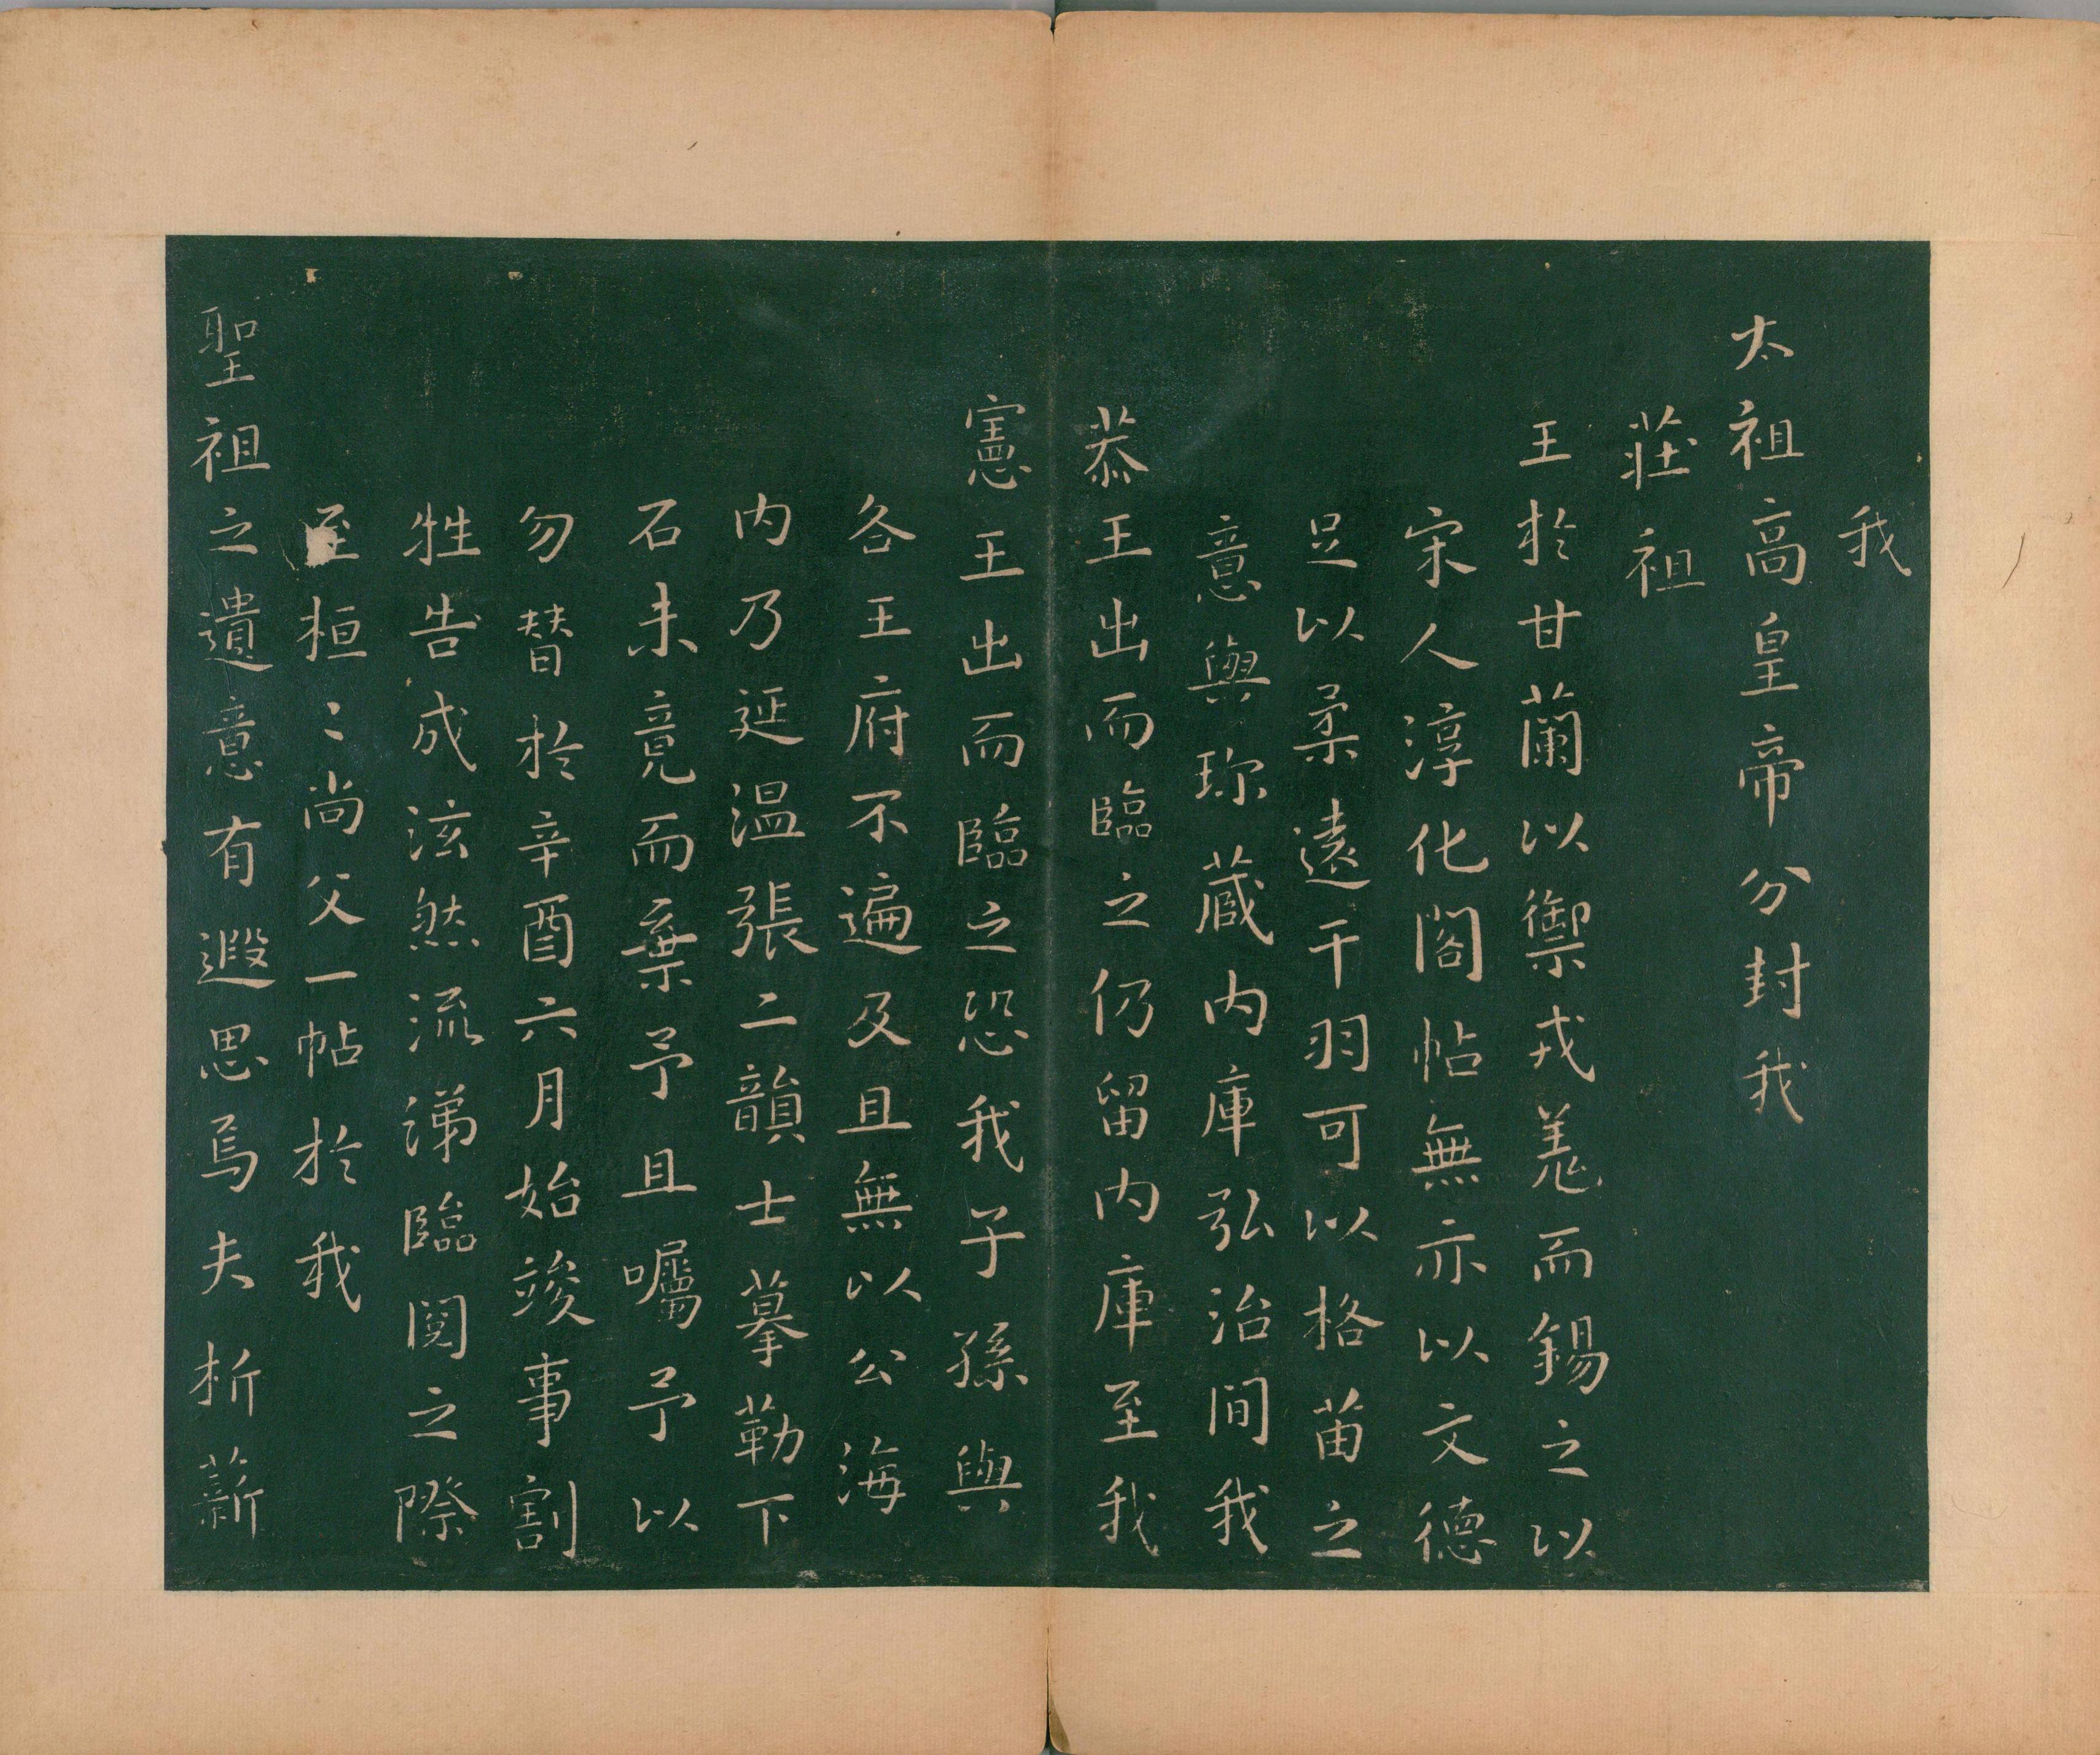 我
太祖高皇帝分封我
莊祖
王於甘蘭以禦戎羌而錫之以
宋人淳化閣帖無亦以文德
足以柔遠干羽可以格苗之
意與珎藏內庫弘治間我
恭王出而臨之仍留內庫至我
憲王出而臨之恐我子孫與
各王府不遍及且無以公海
內乃延溫張二韻士摹勒下
石未竟而棄予且囑予以
勿替於辛酉六月始竣事割
牲告成泫然流涕臨閱之際
至桓〻尚父一帖於我
聖祖之遺意有遐思焉夫析薪